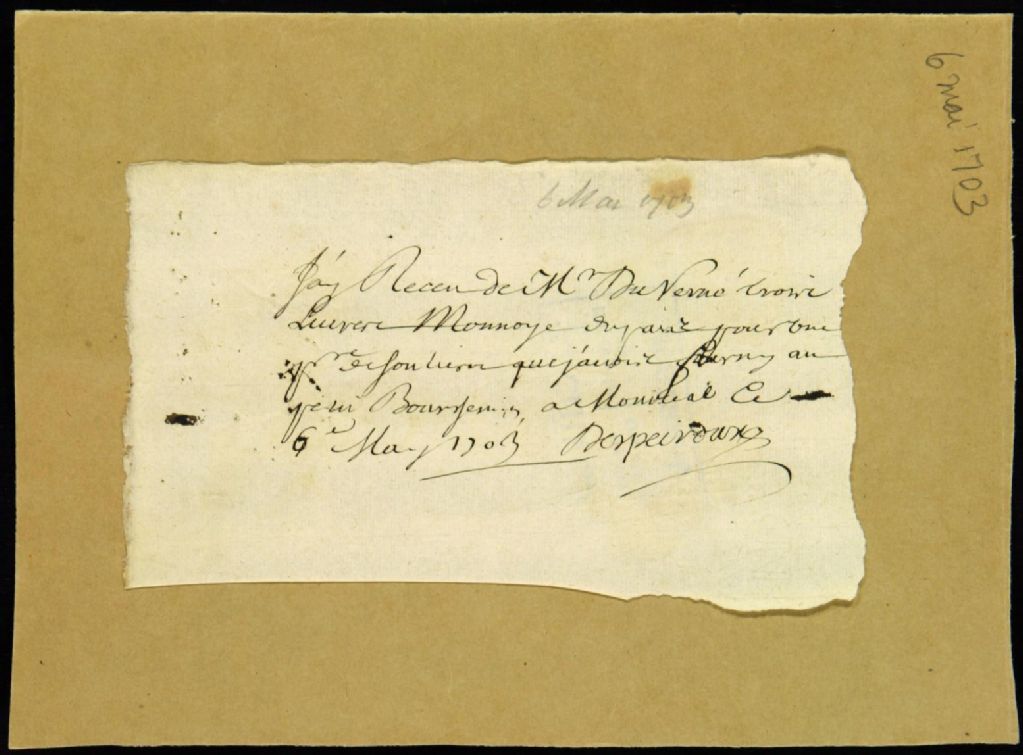 6 mai 1703
6 Mai 1703
J'ay Receu de Mr Du Verné trois
Livres Monnoye du païs pour une
pre de souliers que j'avois fourny au
petit Boursier, a Montreal Ce
6e May 1703